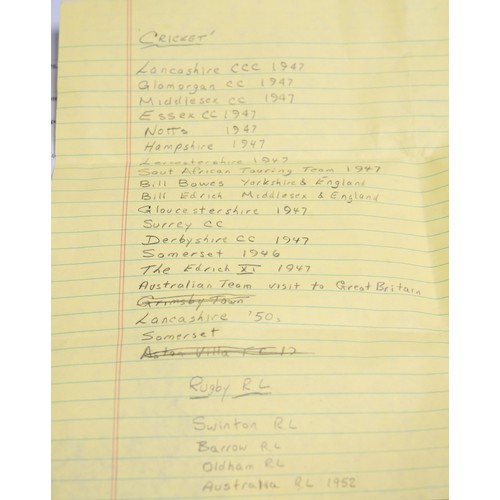 'CRICKET'
Lancashire CCC 1947
Glamorgan CC 1947
Middlesex CC 1947
Essex CC 1947
Notts 1947
Hampshire 1947
Leicestershire 1947
Sout African Touring Team 1947
Bill Bowes Yorkshire & England
Bill Edrich Middlesex & England
Gloucestershire 1947
Surrey CC
Derbyshire CC 1947
Somerset 1946
The Edrich XI 1947
Australian Team visit to Great Britain
Grimsby Town
Lancashire '50.
Somerset
Aston Villa FC
Rugby R.L
Swinton R.L
Barrow R.L
Oldham R.L
Australia R.L 1952